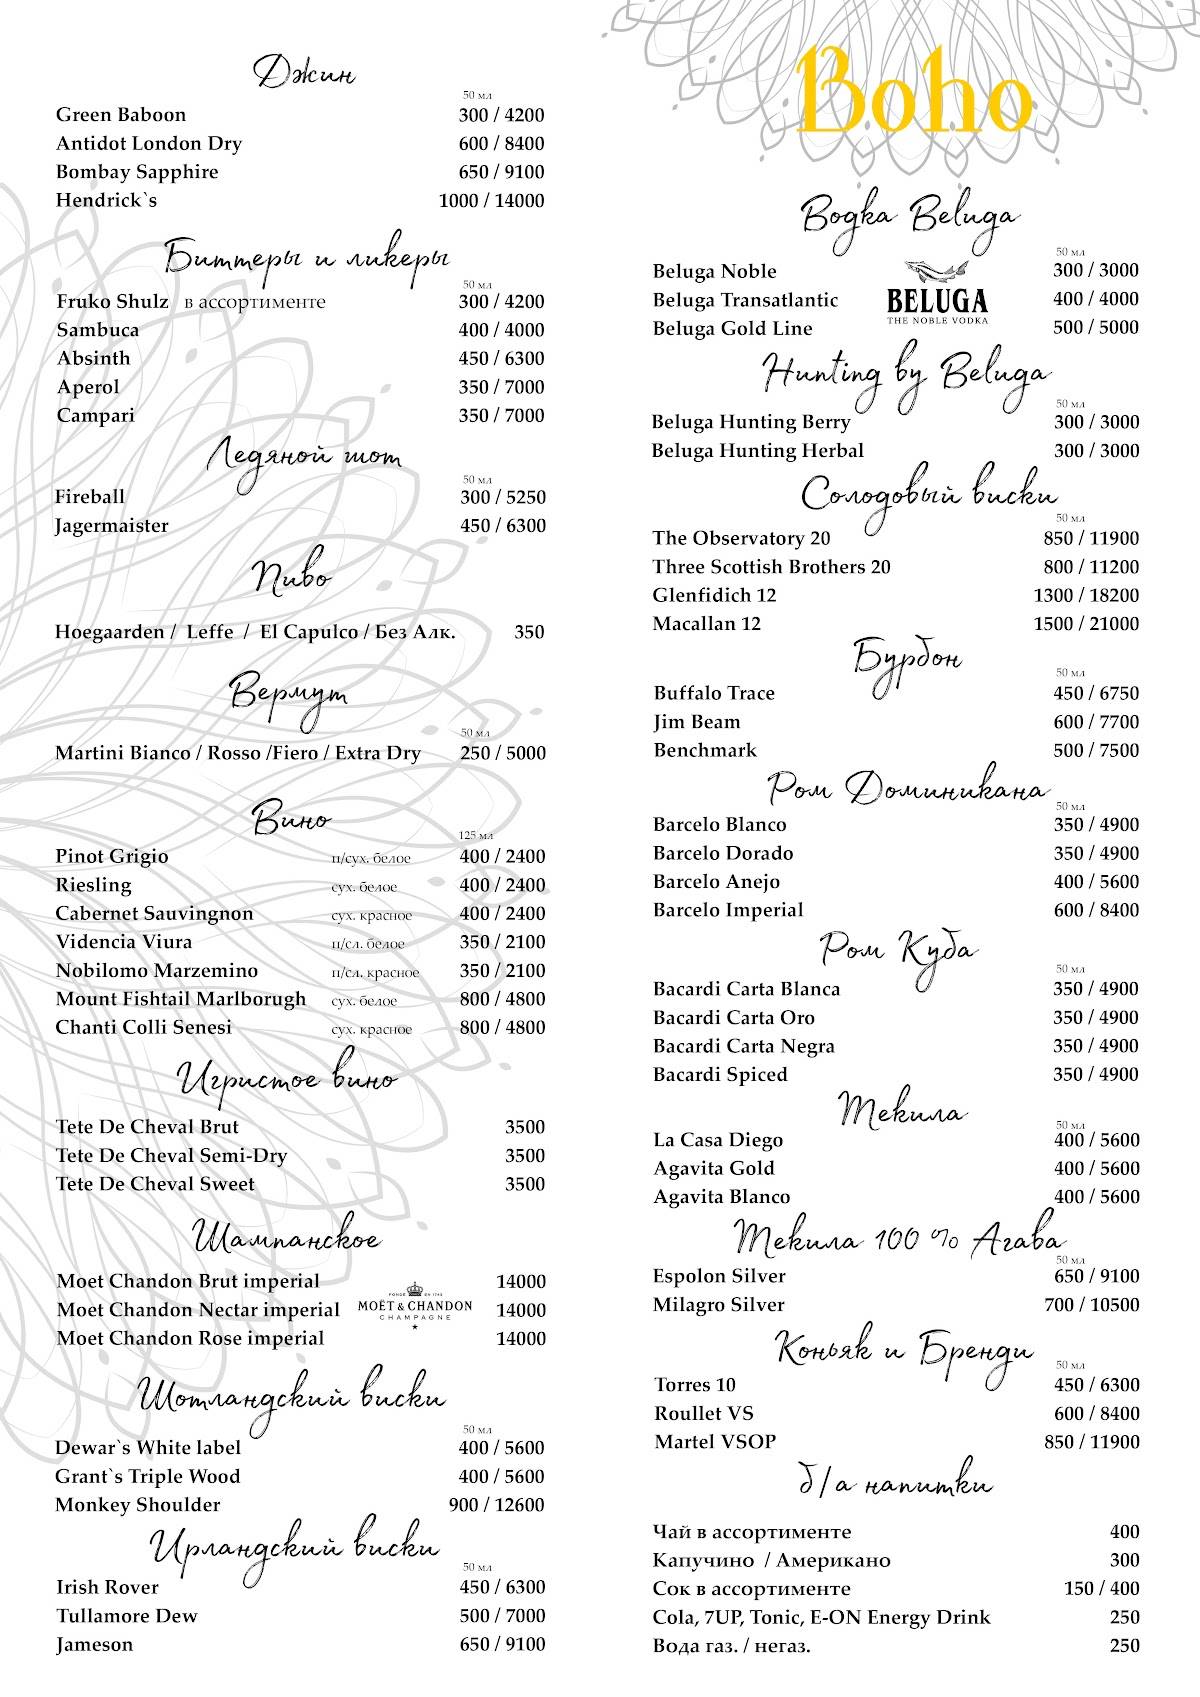 Джин
50 мл
Green Baboon 300 / 4200
Antidot London Dry 600 / 8400
Bombay Sapphire 650 / 9100
Hendrick`s 1000 / 14000
Биттеры и ликеры
50 мл
Fruko Shulz в ассортименте 300 / 4200
Sambuca 400 / 4000
Absinth 450 / 6300
Aperol 350 / 7000
Campari 350 / 7000
Ледяной шот
50 мл
Fireball 300 / 5250
Jagermaister 450 / 6300
Пиво
Hoegaarden / Leffe / El Capulco / Без Алк. 350
Вермут
50 мл
Martini Bianco / Rosso /Fiero / Extra Dry 250 / 5000
Вино
125 мл
Pinot Grigio п/сух. белое 400 / 2400
Riesling сух. белое 400 / 2400
Cabernet Sauvingnon сух. красное 400 / 2400
Videncia Viura п/сл. белое 350 / 2100
Nobilomo Marzemino п/сл. красное 350 / 2100
Mount Fishtail Marlborugh сух. белое 800 / 4800
Chanti Colli Senesi сух. красное 800 / 4800
Игристое вино
Tete De Cheval Brut 3500
Tete De Cheval Semi-Dry 3500
Tete De Cheval Sweet 3500
Шампанское
Moet Chandon Brut imperial 14000
Moet Chandon Nectar imperial 14000
Moet Chandon Rose imperial 14000
MOËT & CHANDON
CHAMPAGNE
Шотландский виски
50 мл
Dewar`s White label 400 / 5600
Grant`s Triple Wood 400 / 5600
Monkey Shoulder 900 / 12600
Ирландский виски
50 мл
Irish Rover 450 / 6300
Tullamore Dew 500 / 7000
Jameson 650 / 9100
Boho
Водка Beluga
50 мл
Beluga Noble 300 / 3000
Beluga Transatlantic 400 / 4000
Beluga Gold Line 500 / 5000
BELUGA
THE NOBLE VODKA
Hunting by Beluga
50 мл
Beluga Hunting Berry 300 / 3000
Beluga Hunting Herbal 300 / 3000
Солодовый виски
50 мл
The Observatory 20 850 / 11900
Three Scottish Brothers 20 800 / 11200
Glenfidich 12 1300 / 18200
Macallan 12 1500 / 21000
Бурбон
50 мл
Buffalo Trace 450 / 6750
Jim Beam 600 / 7700
Benchmark 500 / 7500
Ром Доминикана
50 мл
Barcelo Blanco 350 / 4900
Barcelo Dorado 350 / 4900
Barcelo Anejo 400 / 5600
Barcelo Imperial 600 / 8400
Ром Куба
50 мл
Bacardi Carta Blanca 350 / 4900
Bacardi Carta Oro 350 / 4900
Bacardi Carta Negra 350 / 4900
Bacardi Spiced 350 / 4900
Текила
50 мл
La Casa Diego 400 / 5600
Agavita Gold 400 / 5600
Agavita Blanco 400 / 5600
Текила 100 % Агава
50 мл
Espolon Silver 650 / 9100
Milagro Silver 700 / 10500
Коньяк и Бренди
50 мл
Torres 10 450 / 6300
Roullet VS 600 / 8400
Martel VSOP 850 / 11900
б/а напитки
Чай в ассортименте 400
Капучино / Американо 300
Сок в ассортименте 150 / 400
Cola, 7UP, Tonic, E-ON Energy Drink 250
Вода газ. / негаз. 250